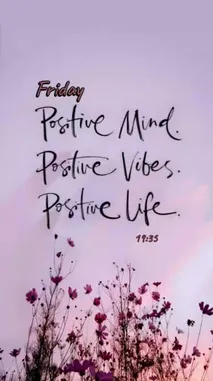 Friday
Positive Mind.
Positive Vibes.
Positive Life.
19:35